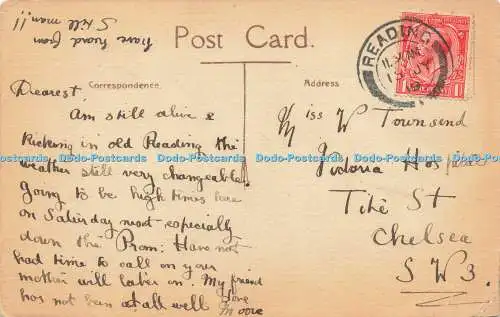 have heard from
Skill man!!
Post Card.
READING
Correspondence
Address
Dearest
Am still alive &
Kicking in old Reading the
weather still very changeable
going to be high times here
on Saturday next especially
down the Prom: Have not
had time to call on your
mother will later on. My friend
has not been at all well Love
Moore
Miss W Townsend
Victoria Hospital
Tite St
Chelsea
S W 3.
Dodo-Postcards Dodo-Postcards Dodo-Postcards Dodo-Postcards Dodo-Postcards Dodo-Postcards